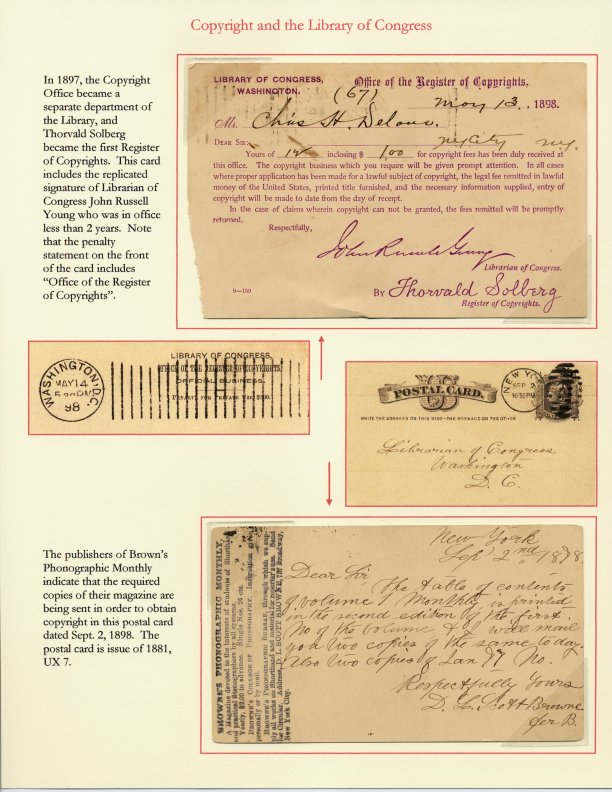 Copyright and the Library of Congress
In 1897, the Copyright
Office became a
separate department of
the Library, and
Thorvald Solberg
became the first Register
of Copyrights.  This card
includes the replicated
signature of Librarian of
Congress John Russell
Young who was in office
less than 2 years.  Note
that the penalty
statement on the front
of the card includes
“Office of the Register
of Copyrights”.
LIBRARY OF CONGRESS,
WASHINGTON.
Office of the Register of Copyrights,
(67)
May 13, 1898.
Mr. Chas H.
DEAR SIR:
NY City N.Y.
Yours of 12 inclosing $ 1.00 for copyright fees has been duly received at
this office. The copyright business which you require will be given prompt attention. In all cases
where proper application has been made for a lawful subject of copyright, the legal fee remitted in lawful
money of the United States, printed title furnished, and the necessary information supplied, entry of
copyright will be made to date from the day of receipt.
In the case of claims wherein copyright can not be granted, the fees remitted will be promptly
returned.
Respectfully,
John Russell Young
Librarian of Congress.
By Thorvald Solberg
Register of Copyrights.
WASHINGTON, D.C.
MAY 14
5 30 PM
98
LIBRARY OF CONGRESS,
OFFICE OF THE REGISTER OF COPYRIGHTS.
OFFICIAL BUSINESS.
PENALTY FOR PRIVATE USE, $300.
POSTAL CARD.
NEW YO
SEP 2
10 30 PM
WRITE THE ADDRESS ON THIS SIDE - THE MESSAGE ON THE OTHER
Librarian of Congress
Washington
D. C.
The publishers of Brown’s
Phonographic Monthly
indicate that the required
copies of their magazine are
being sent in order to obtain
copyright in this postal card
dated Sept. 2, 1898.  The
postal card is issue of 1881,
UX 7.
BROWNE'S PHONOGRAPHIC MONTHLY.
A Magazine devoted to the interests of students of Shorthand
and practical Stenographers by all systems.
Yearly, $2.00 in advance. Single Nos. 20 cts.
BROWNE'S COLLEGE OF PHONOGRAPHY. Instruction given
personally or by mail.
BROWNE'S PHONOGRAPHIC BUREAU, through which we sup-
ply all works on Shorthand and material for reporter's use. Send
for Circular. Address D. L. SCOTT BROWNE, Broadway,
New York City.
New York
Sep' 2nd 1878.
Dear Sir
The table of contents
of volume 1 Monthly is printed
in the second edition of the first
No of the volume I will mail
you two copies of the same to day.
Also two copies of Jan 77 No.
Respectfully Yours
D. L. Scott Browne
per B.